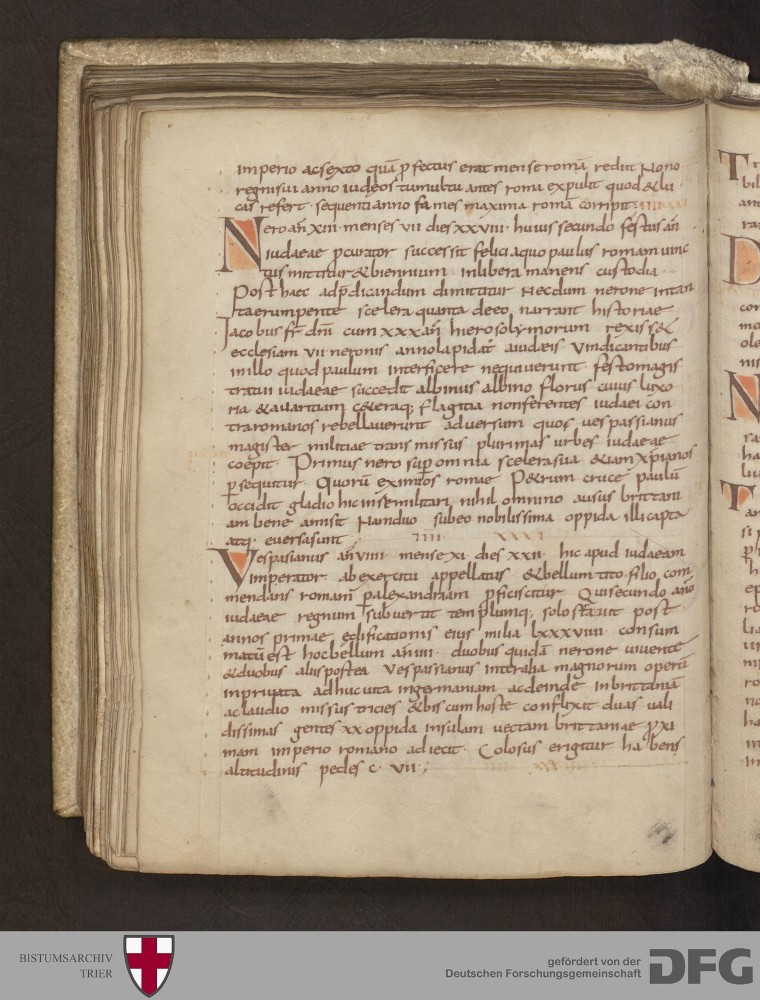 imperio ac sexto quā ꝓfectus erat mense romā rediit Nono
regni sui anno iudęos tumultuantes roma expulit quod & lu
cas refert · sequenti anno fames maxima romā corripit ·
Nero añ XIII · menses VII dies XXVIII · huius secundo festus añ
iudaeae ꝓcurator successit felici a quo paulus romam uinc
tus mittitur & biennium in libera manens custodia
Post haec ad p̄dicandum dimittitur Necdum nerone in tan
ta erumpente scelera quanta de eo narrant historiae
Iacobus fr̄ dn̄i cum XXX añ hierosolymorum rexiss&
ecclesiam VII neronis anno lapidat̄ a iudæis Vindicantibus
in illo quod paulum interficere nequiuerunt festo magis
tratui iudaeae succedit albinus albino florus cuius luxo
ria & auaritiam c&eraq; flagitia non ferentes iudaei con
tra romanos rebellauerunt aduersum quos uespassianus
magister militiae transmissus plurimas urbes iudaeae
coepit Primus nero sup̄ omnia scelera sua &iam xp̄ianos
p̄sequitur Quorū eximios romae P&rum cruce paulū
occidit gladio hic in re militari nihil omnino ausus brittani
am bene amisit Nam duo sub eo nobilissima oppida illic capta
atq· euersa sunt
Vespasianus añ VIIII · mense XI dies XXII · hic apud iudaeam
imperator ab exercitu appellatus & bellum tito filio com
mendans romam p̄ alexandriam ꝓficiscitur Qui secundo año
iudaeae regnum subuertit templumq; solo strauit post
annos primae edificationis eius milia LXXXVIIII · consum
matū est hoc bellum añ IIII · duobus quidā nerone uiuente
& duobus aliis postea Vespassianus inter alia magnorum operū
in priuata adhuc uita in germaniam ac deinde in brittaniā
a claudio missus tricies & bis cum hoste conflixit duas uali
dissimas gentes XX oppida insulam uectam brittaniae ꝓxi
mam imperio romano adiecit · Colosus erigitur habens
altitudinis pedes C · VII ·;
BISTUMSARCHIV
TRIER
gefördert von der
Deutschen Forschungsgemeinschaft
DFG